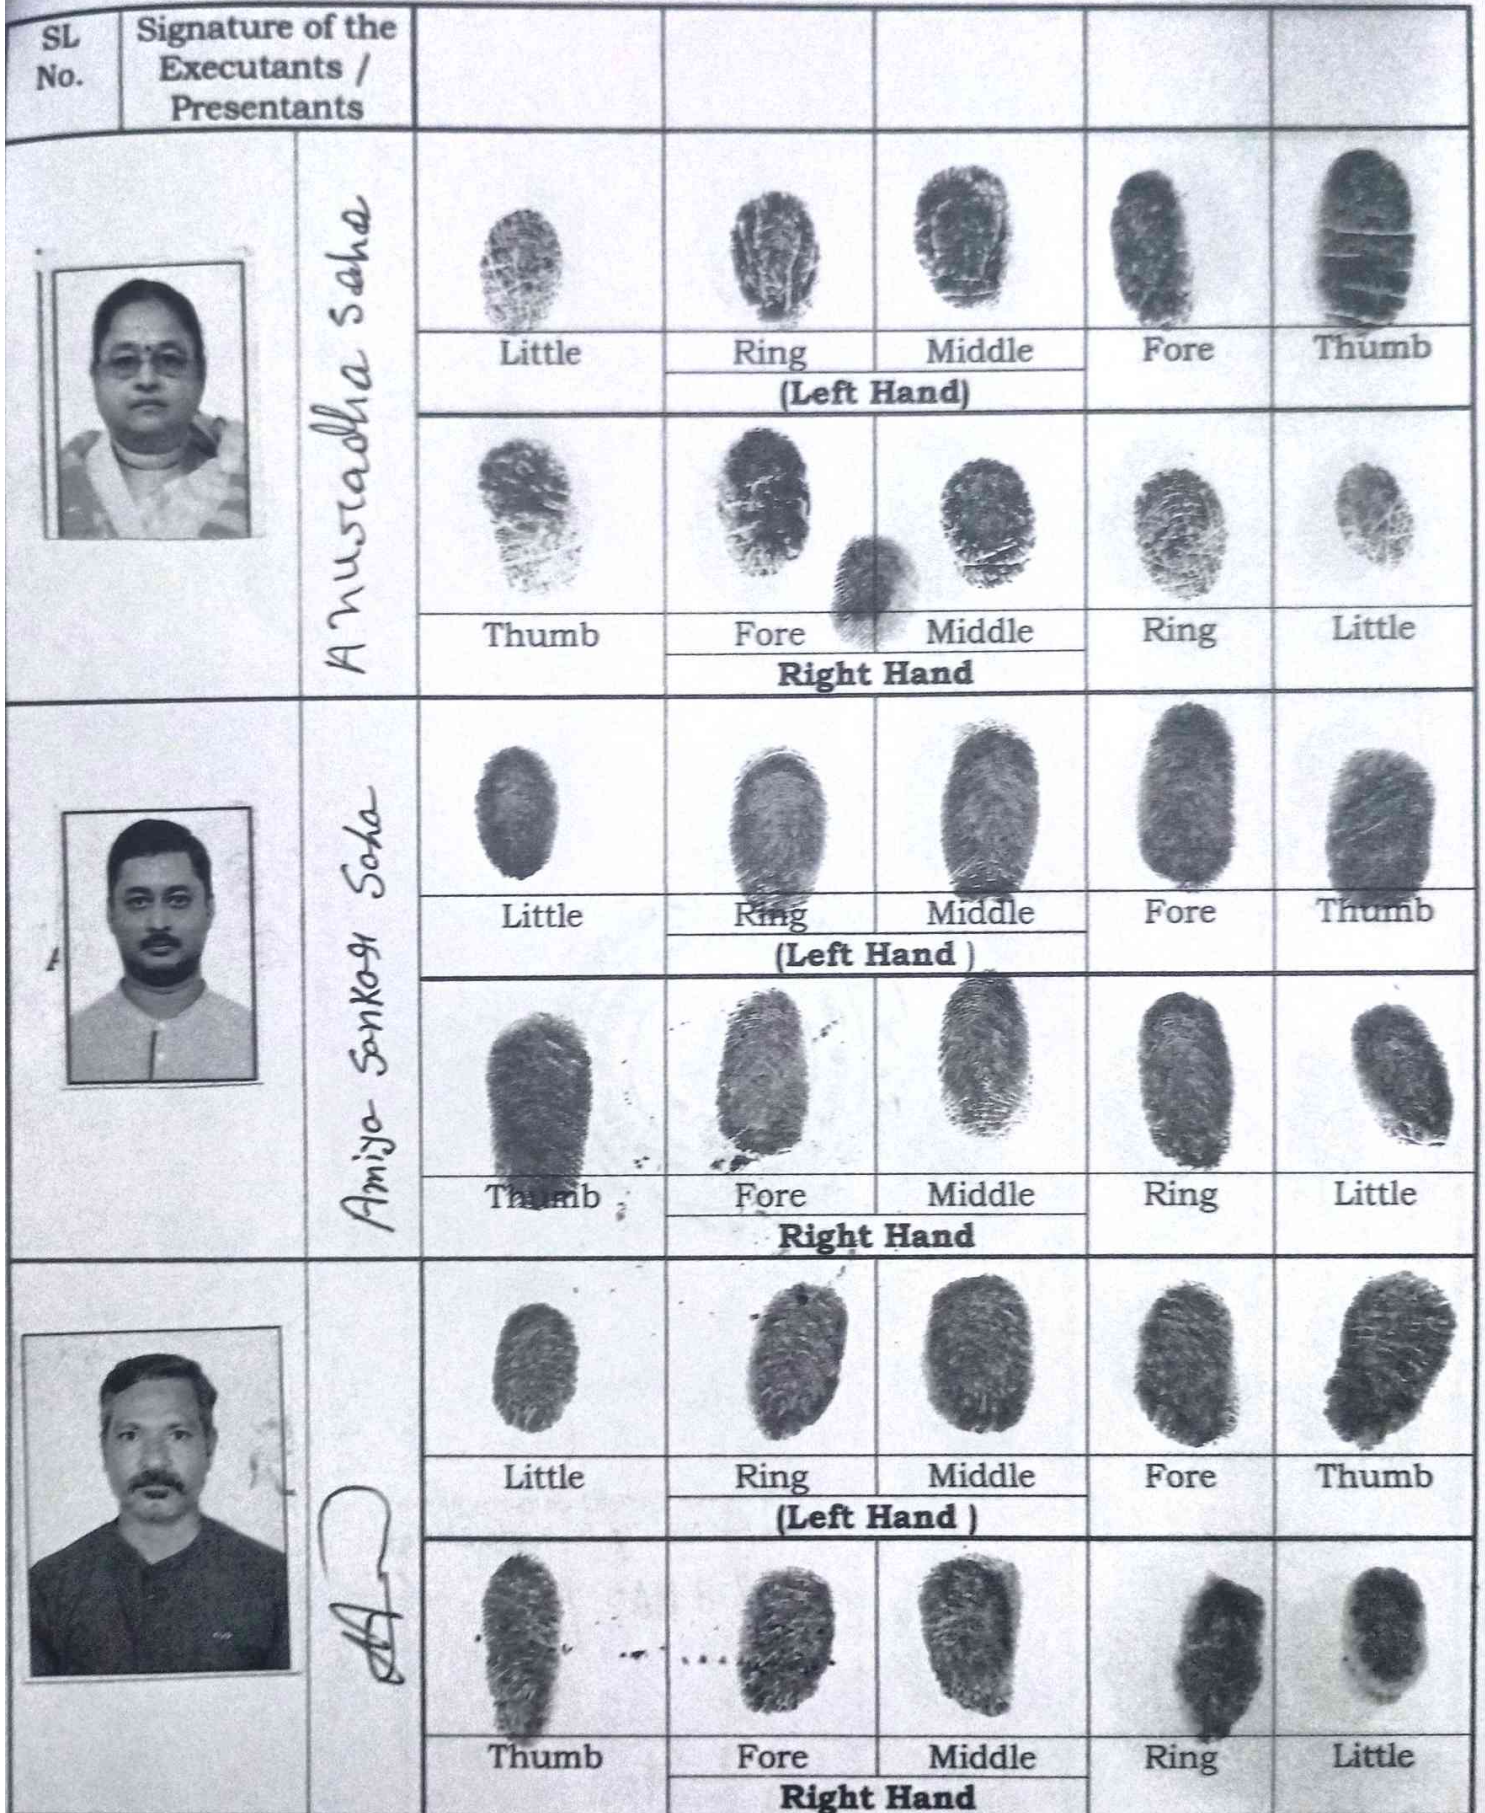 SL No.
Signature of the Executants / Presentants
Anuradha Saha
Little Ring Middle Fore Thumb
(Left Hand)
Thumb Fore Middle Ring Little
Right Hand
Amiya Sankar Saha
Little Ring Middle Fore Thumb
(Left Hand )
Thumb Fore Middle Ring Little
Right Hand
Little Ring Middle Fore Thumb
(Left Hand )
Thumb Fore Middle Ring Little
Right Hand